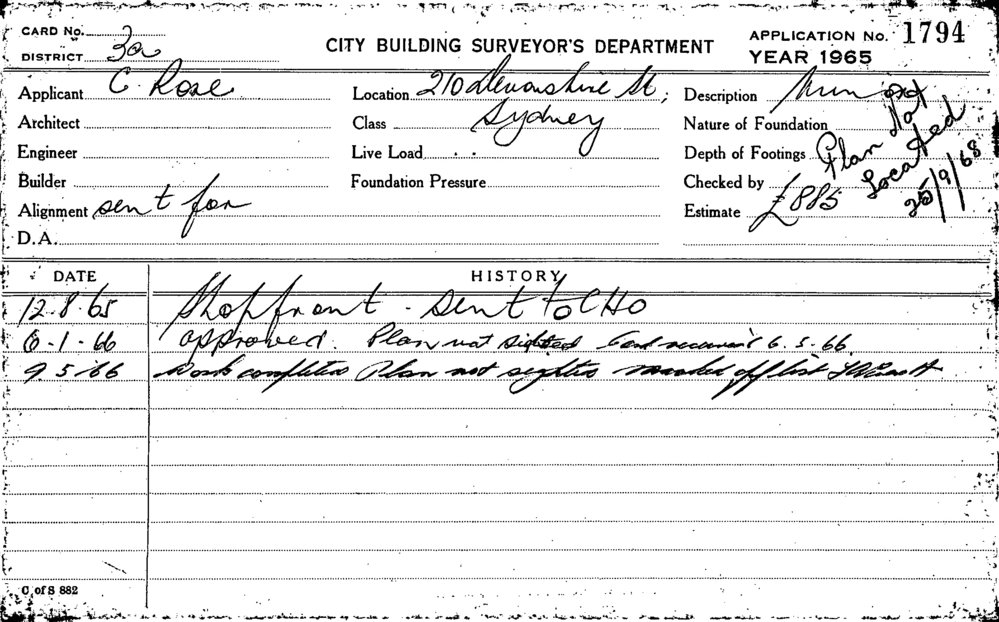 CARD No.
DISTRICT 3a
CITY BUILDING SURVEYOR'S DEPARTMENT
APPLICATION No. 1794
YEAR 1965
Applicant C Rose
Location 210 Devonshire St,
Description
Architect
Class Sydney
Nature of Foundation
Engineer
Live Load
Depth of Footings
Plan Not
Located
25/9/68
Builder
Foundation Pressure
Checked by
Alignment sent for
Estimate £885
D.A.
DATE HISTORY
12.8.65 Shopfront - sent to CHO
6.1.66 approved. Plan not sighted Card 6.5.66
9 5 66 Work completed Plan not sighted marked off list
C of S 882